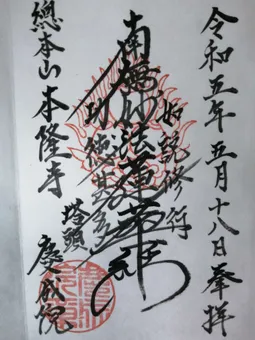 令和五年五月十八日奉拝
如説修行
南無妙法蓮華経
功徳甚
總本山本隆寺
塔頭
慶成院